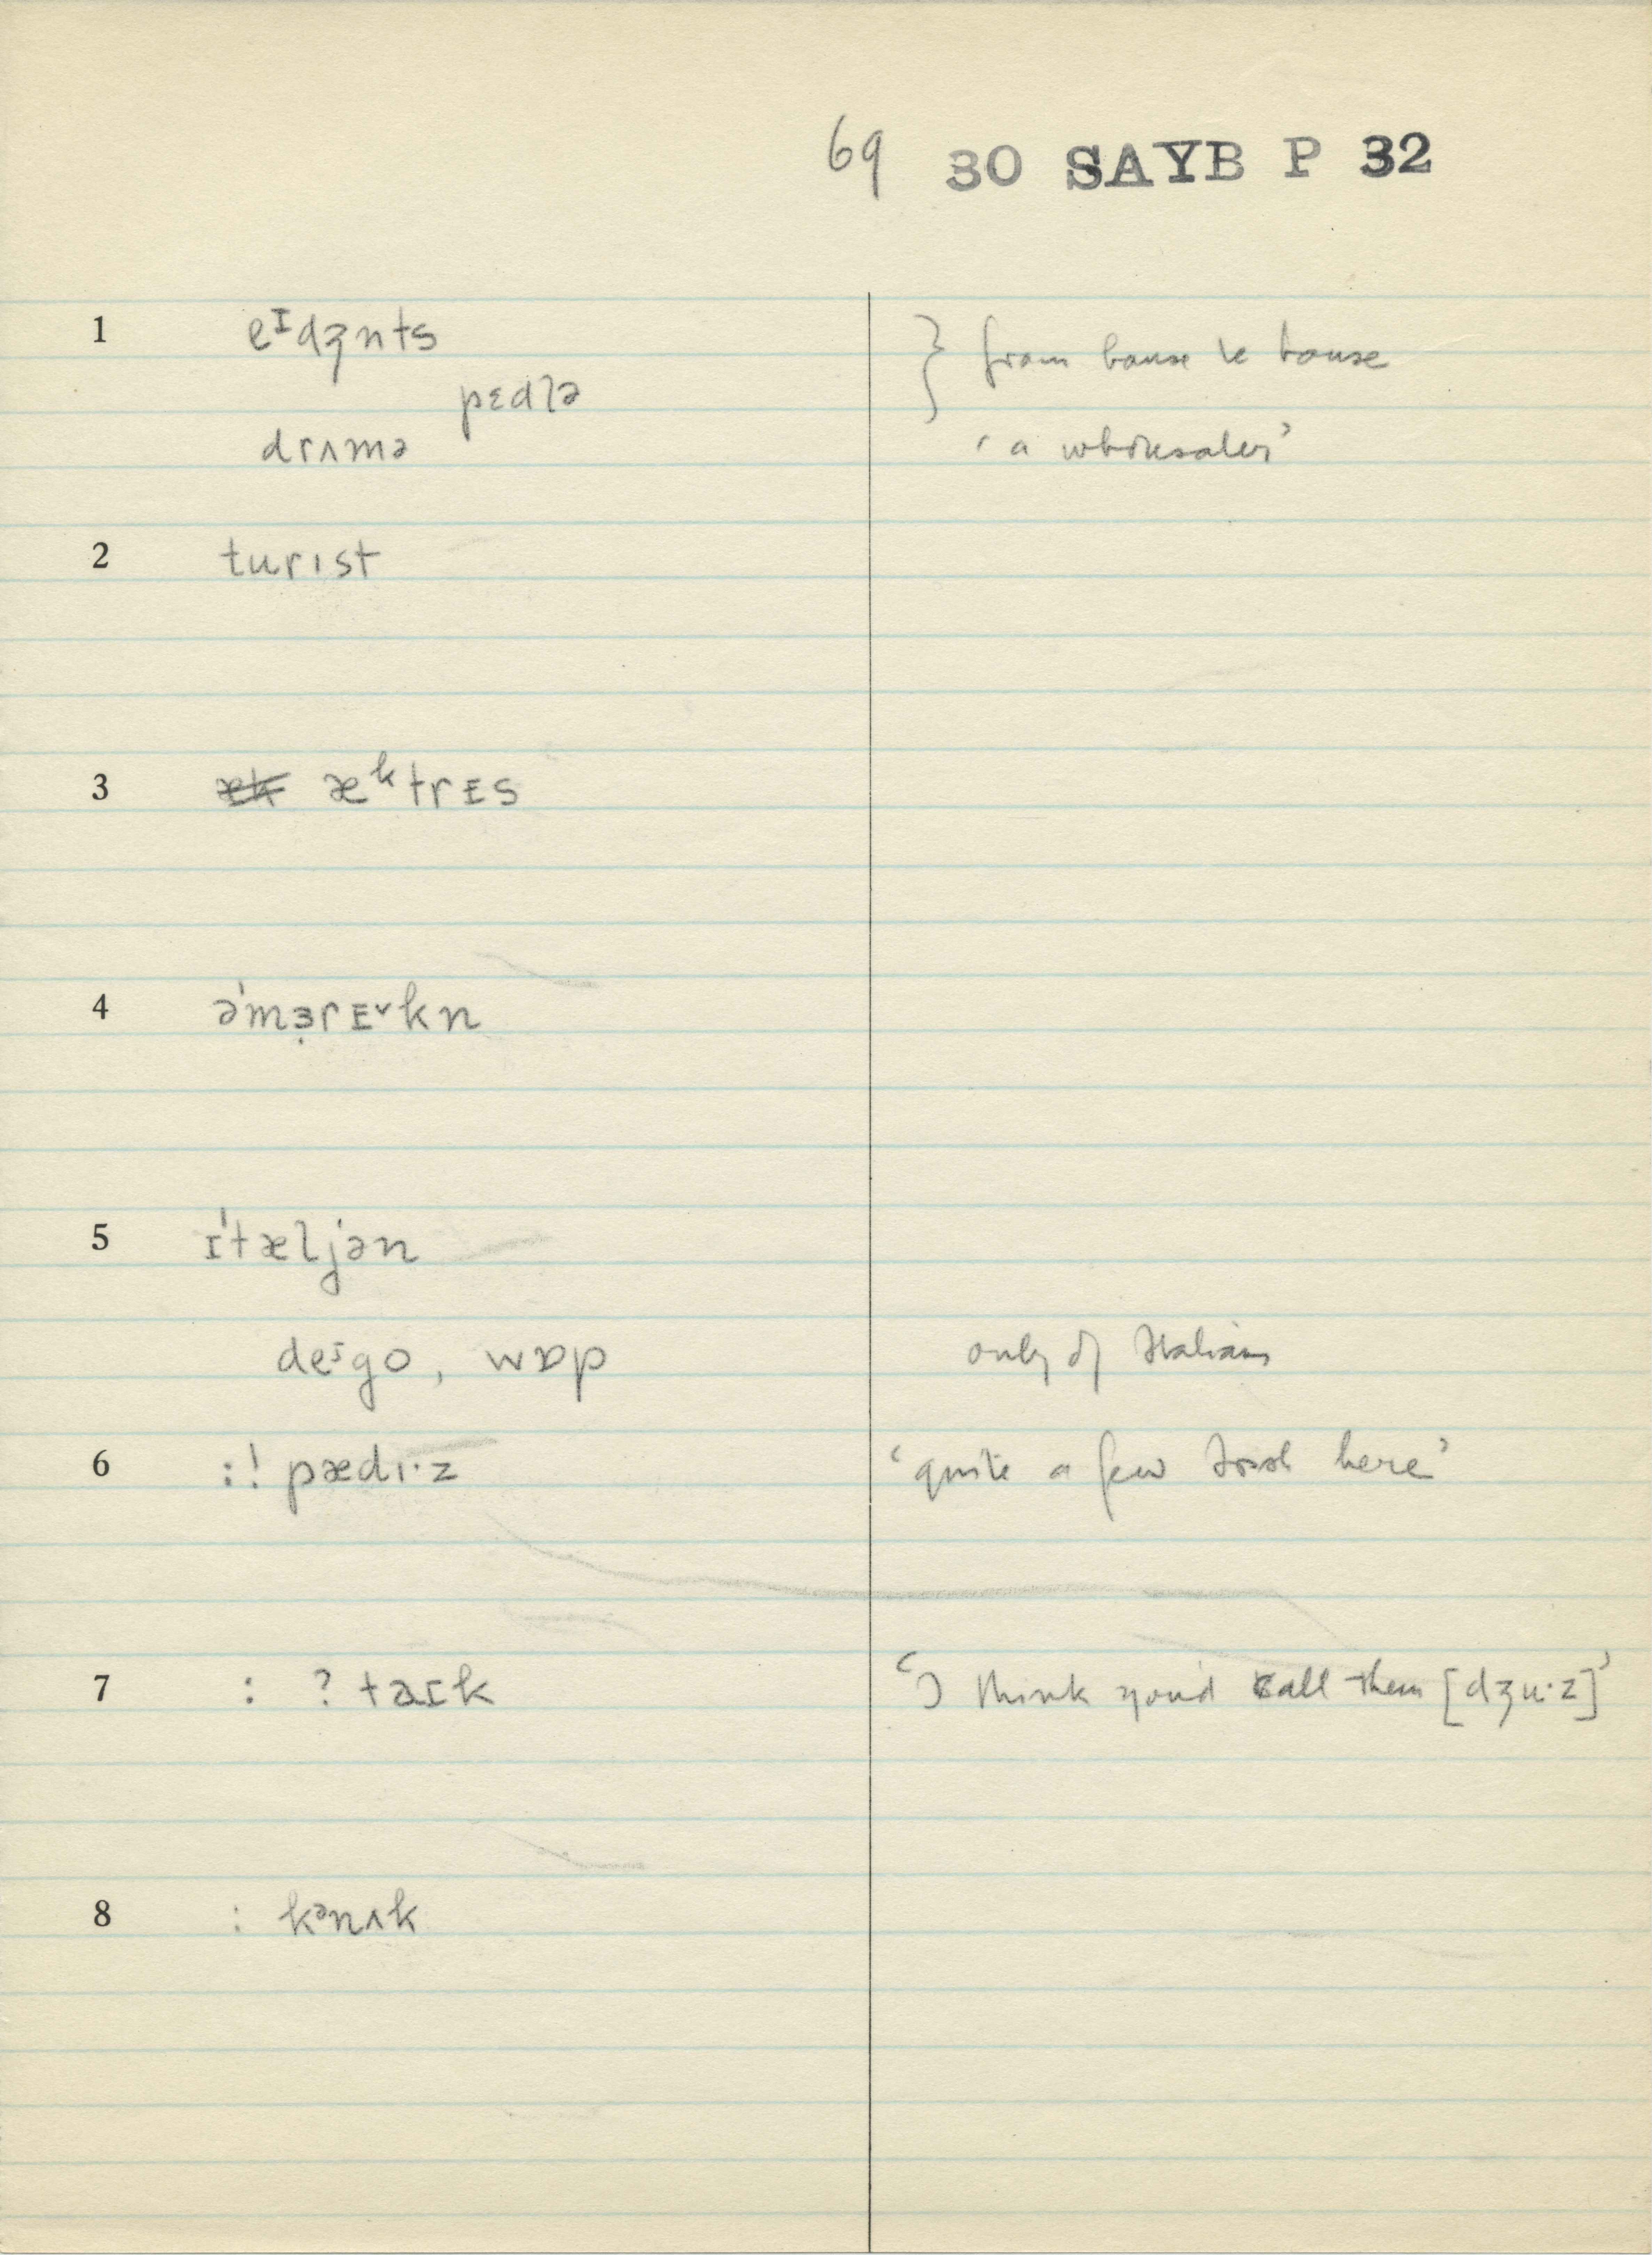 69 30 SAYB P 32
1 eᴵdʒnts } from house to house
pɛdlə
drʌmə ‘a wholesaler’
2 turıst
3 æᵏtrᴇs
4 ə'mɜ̣rᴇˇkn
5 ɪ'tæljən
deᶦgo, wɒp only of Italians
6 :! pædı·z ‘quite a few Irish here’
7 : ? taɪk ‘I think you'd call them [dʒu·z]’
8 : kᵊnʌk